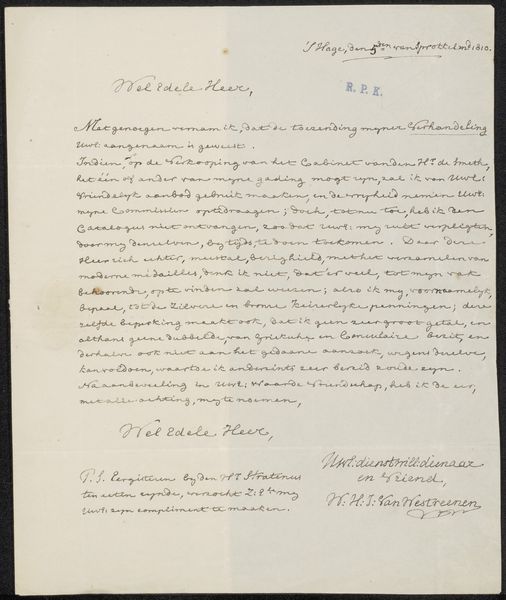 S'Hage, den 5den van Sprokkelmd 1810.
R. P. K.
Wel Edele Heer,
Met genoegen vernam ik, dat de toezending myner Verhandeling
Uwl: aangenaam is geweest.
Indien, op de Verkooping van het Cabinet van den Hr. de Smeth,
het één of ander van myne gading mogt zyn, zal ik van Uwl:
vriendelyk aanbod gebruik maaken, en de vryheid nemen Uwl:
myne Commissien optedraagen; doch, tot nu toe, heb ik den
Catalogus niet ontvangen, zoo dat Uwl: my zult verpligten,
door my denzelven, by tyds, te doen toekomen. Daar deze
Heer zich echter, meestal, bezig hield, met het verzamelen van
moderne medailles, denk ik niet, dat er veel, tot myn vak
behoorende, opte vinden zal weezen; alzo ik my, voornaamelyk,
bepaal, tot de zilvere en bronze keizerlyke penningen; deze
zelfde beperking maakt ook, dat ik geen zeer groot getal, en
althans geene dubbelde van Grieksche en Consulaire bezit, en
derhalve ook niet aan het gedaane aanzoek, wegens dezelve,
kan voldoen, waartoe ik anderzints zeer bereid zoude zyn.
Na aanbeveeling in Uwl: Waarde Vriendschap, heb ik de eer,
met alle achting, my te noemen,
Wel Edele Heer,
Uwl: dienstwill: dienaar
en Vriend,
W. H. J: Van Westreenen
P. S. Eergisteren by den Hr. Stratenus
ten eeten zynde, verzocht Z: E. my
Uwl: zyn compliment te maaken.